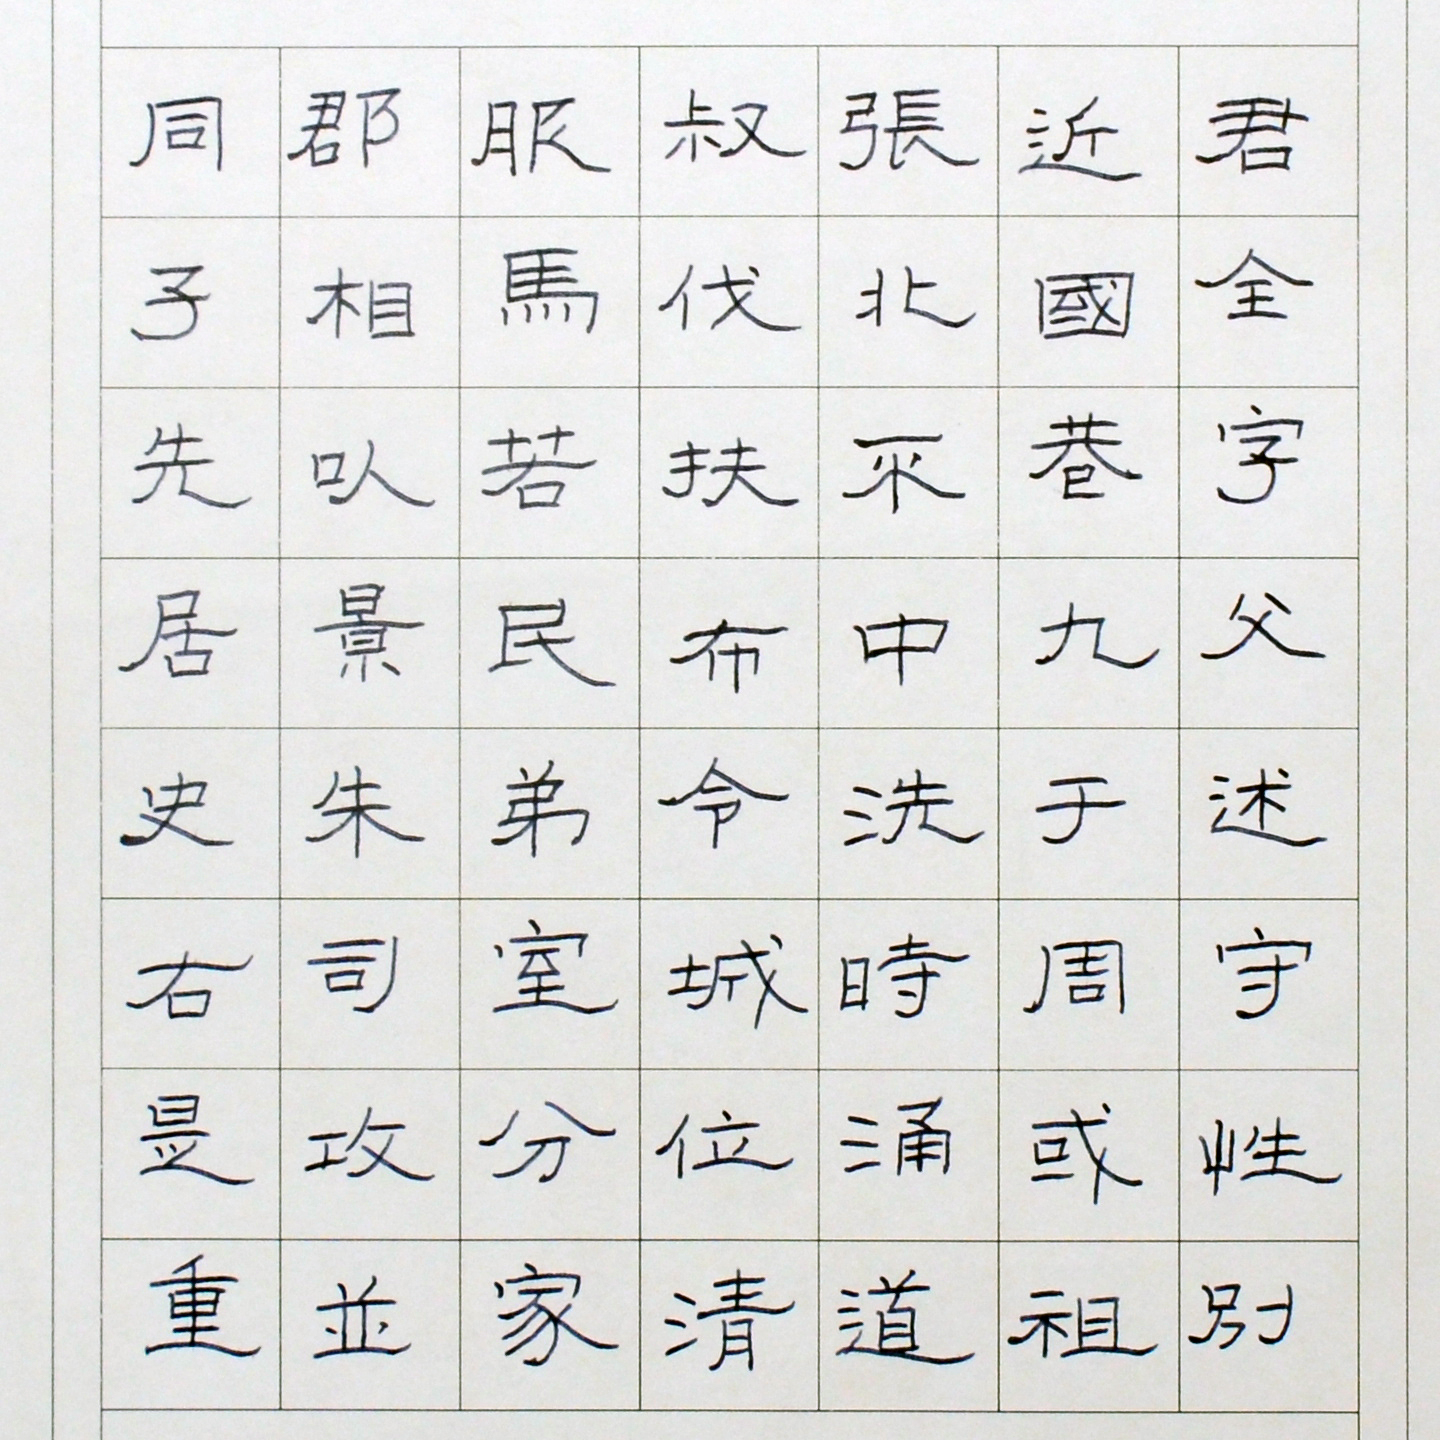 君全字父述守性別
近國巷九于周或祖
張北来中洗時涌道
叔伐扶布令城位清
服馬若民弟室分家
郡相以景朱司攻並
同子先居史右是重